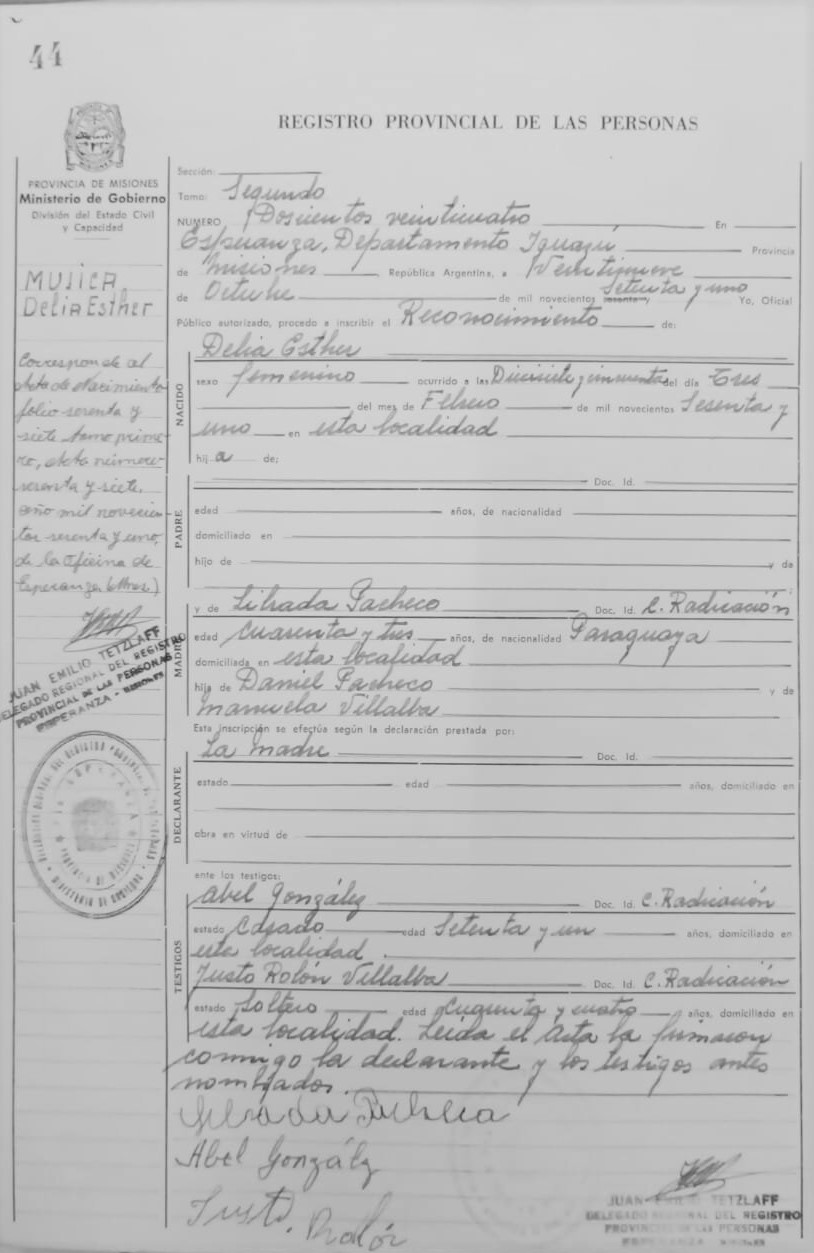 44
REGISTRO PROVINCIAL DE LAS PERSONAS
PROVINCIA DE MISIONES
Ministerio de Gobierno
División del Estado Civil
y Capacidad
MUJICA
Delia Esther
Corresponde al
Acta de Nacimiento
folio sesenta y
siete tomo prime-
ro, Acta número
sesenta y siete
año mil novecien-
tos sesenta y uno,
de la Oficina de
Esperanza (Mnes.)
JUAN EMILIO TETZLAFF
DELEGADO REGIONAL DEL REGISTRO
PROVINCIAL DE LAS PERSONAS
ESPERANZA - MISIONES
Sección:
Tomo: Segundo
NUMERO Doscientos veinticuatro En
Esperanza, Departamento Iguazú Provincia
de Misiones República Argentina, a Veintinueve
de Octubre de mil novecientos Setenta y uno Yo, Oficial
Público autorizado, procedo a inscribir el Reconocimiento de:
NACIDO
Delia Esther
sexo femenino ocurrido a las Diecisiete y cincuenta del día Tres
del mes de Febrero de mil novecientos Sesenta y
uno en esta localidad
hij a de:
PADRE
Doc. Id.
edad años, de nacionalidad
domiciliado en
hijo de y de
MADRE
y de Librada Pacheco Doc. Id. C. Radicación
edad Cuarenta y tres años, de nacionalidad Paraguaya
domiciliada en esta localidad
hija de Daniel Pacheco y de
Manuela Villalba
Esta inscripción se efectúa según la declaración prestada por:
DECLARANTE
La madre Doc. Id.
estado edad años, domiciliado en
obra en virtud de
ante los testigos:
TESTIGOS
Abel González Doc. Id. C. Radicación
estado Casado edad Setenta y un años, domiciliado en
esta localidad
Justo Rolón Villalba Doc. Id. C. Radicación
estado Soltero edad Cuarenta y cuatro años, domiciliado en
esta localidad. Leída el Acta la firmaron
conmigo la declarante y los testigos antes
nombrados.
Librada Pacheco
Abel González
Justo Rolón
JUAN EMILIO TETZLAFF
DELEGADO REGIONAL DEL REGISTRO
PROVINCIAL DE LAS PERSONAS
ESPERANZA MISIONES